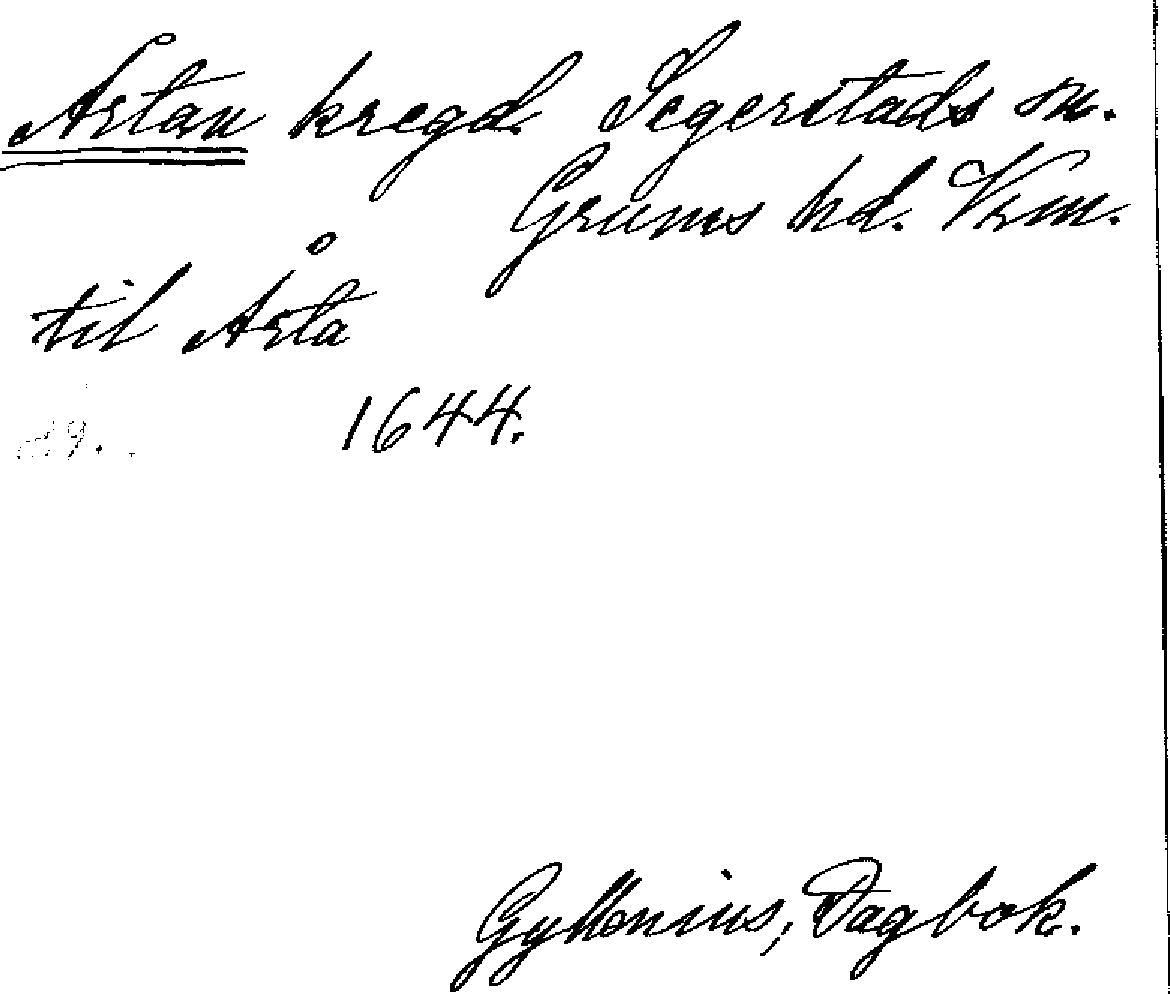 Årtan kregd. Segerstads sn.
Grums hd. Vrm.
til Årta
1644.
Gyllenius, Dagbok.